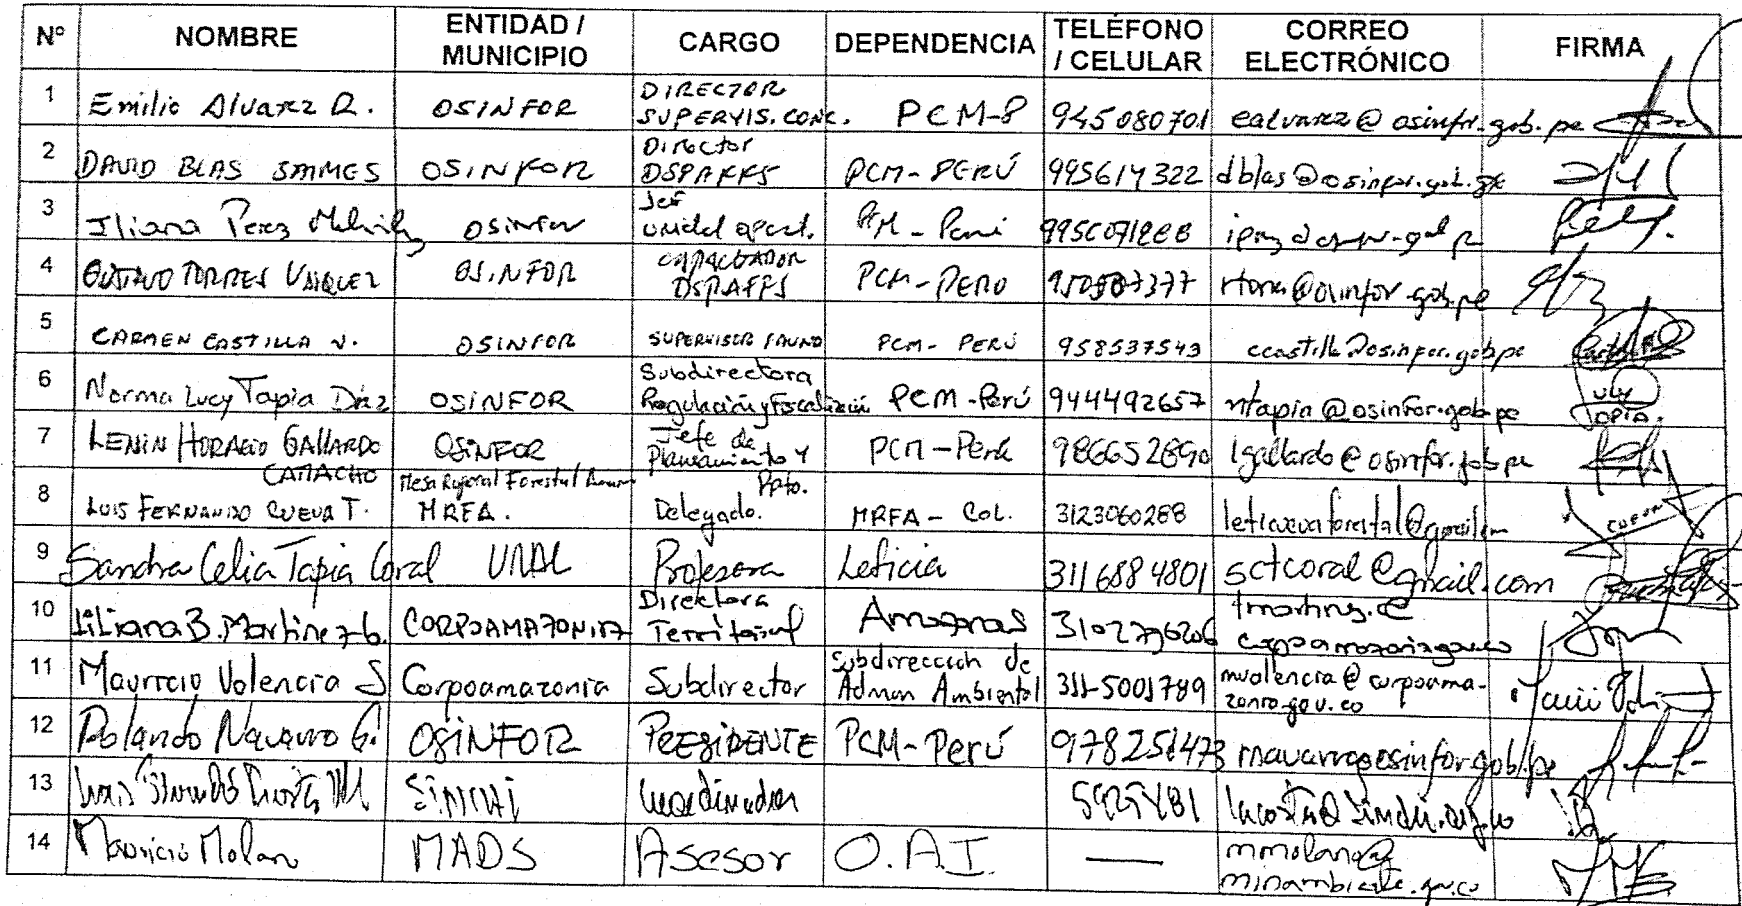 Nº NOMBRE ENTIDAD / MUNICIPIO CARGO DEPENDENCIA TELÉFONO / CELULAR CORREO ELECTRÓNICO FIRMA
1 Emilio Alvarez R. OSINFOR DIRECTOR SUPERVIS. CONC. PCM-P 945080701 ealvarez@osinfor.gob.pe
2 DAVID BLAS OSINFOR Director DSPAFFS PCM-PERÚ 995614322 dblas@osinfor.gob.pe
3 Iliana Perez OSINFOR Jef PCM-Perú
4 GUSTAVO TORRES VASQUEZ OSINFOR CAPACITADOR DSPAFFS PCM-PERÚ @osinfor.gob.pe
5 CARMEN CASTILLA V. OSINFOR SUPERVISOR FAUNA PCM-PERÚ 958537543 ccastilla@osinfor.gob.pe
6 Norma Lucy Tapia Díaz OSINFOR Subdirectora Regulación y Fiscalización PCM-Perú 944492657 ntapia@osinfor.gob.pe LUCY TAPIA.
7 LENIN HORACIO GALLARDO CAMACHO OSINFOR Jefe de Planeamiento y Ppto. PCM-Perú 986652890 lgallardo@osinfor.gob.pe
8 LUIS FERNANDO CUEVA T. Mesa Regional Forestal MRFA. Delegado. MRFA-Col. 3123060288
9 Sandra Celia Tapia Coral UNAL Profesora Leticia 3116884801 sctcoral@gmail.com
10 Liliana B. Martinez G. CORPOAMAZONIA Directora Territorial Amazonas 3102796206
11 Mauricio Valencia S Corpoamazonia Subdirector Subdirección de Admon Ambiental 311-5001789 mvalencia@corpoamazonia.gov.co
12 Rolando Navarro G. OSINFOR PRESIDENTE PCM-Perú 978251473 rnavarro@osinfor.gob.pe
13 SINCHI Coordinador 5925481
14 Mauricio Molano MADS Asesor O.A.I. — mmolano@minambiente.gov.co